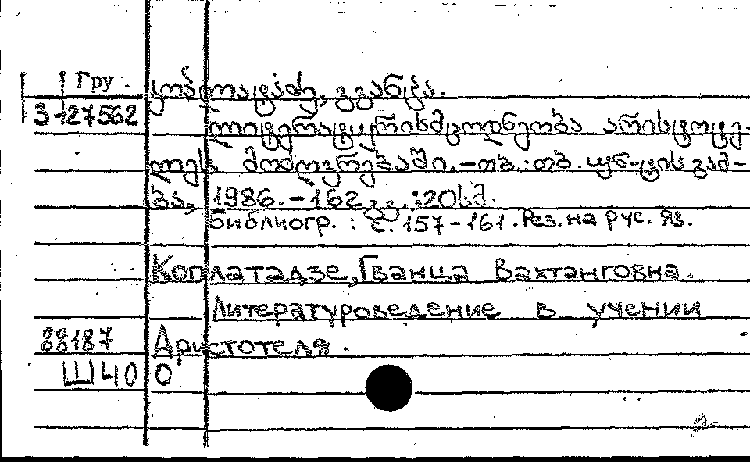 Гру.
კოპლატაძე, გვანცა.
3-27562
ლიტერატურისმცოდნეობა არისტოტე-
ლეს მოძღვრებაში. -თბ.: თბ. უნ-ტის გამ-
ბა, 1986. - 162 გვ. ; 20 სმ.
Библиогр. : с. 157-161. Рез. на рус. яз.
Коплатадзе, Гванца Вахтанговна.
Литературоведение в учении
88187 Аристотеля.
Ш40 0